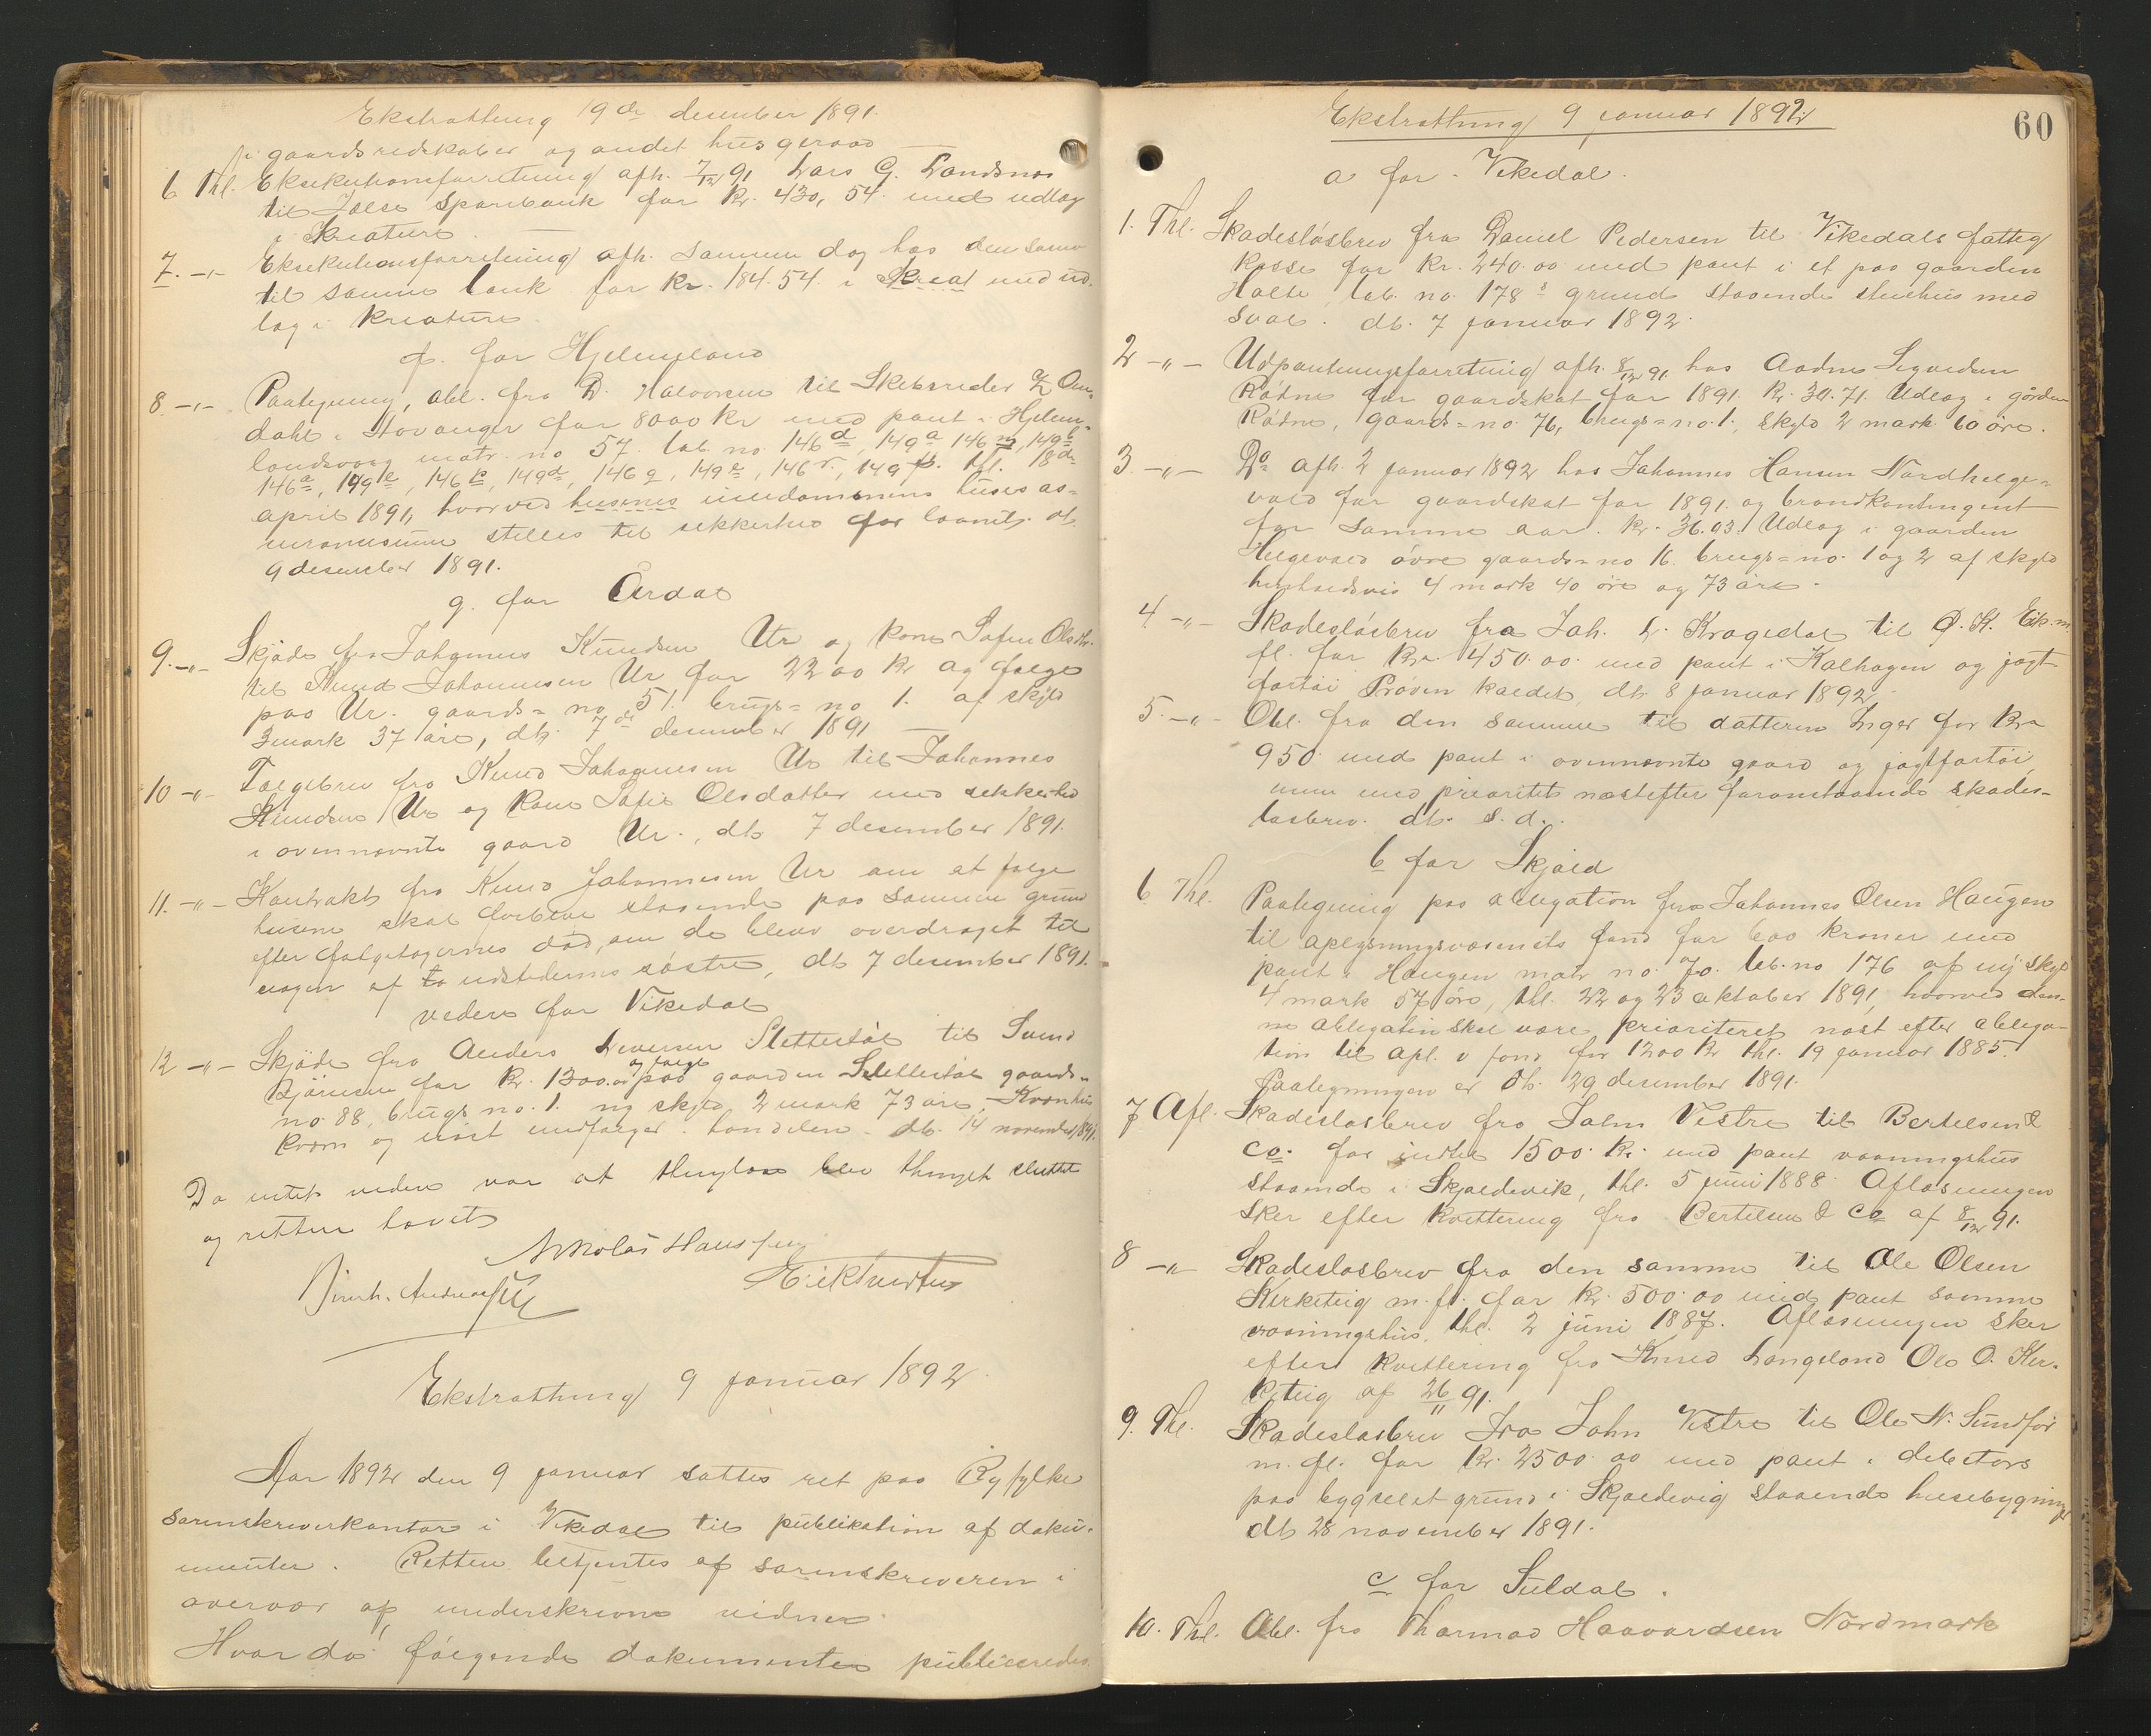 Ekstratting 19de desember 1891.
i gaardsredskaber og andet husgeraad
6 Thl. Eksekutionsforretning afh. 7/12 91 Lars G. Landsnes
til Jelse Sparebank for kr. 430,54. med udlag
i Kreature.
7. -"- Eksekutionsforretning afh. samme dag hos den samme
til samme bank for kr. 184.54. i Kreat med ud-
lag i Kreature
f. for Hjelmeland
8. -"- Paategning, obl. fra D. Halvorsen til Skibsreder
dahl i Stavanger for 8000 kr med pant i Hjelme-
landsvaag matr. no 57. lab. no 146d, 149a 146m, 149b
146a, 149c, 146p, 149d, 146q, 149e, 146r, 149f. thl. 18de
april 1891, hvorved husenes eiendommens huses as-
suransesum stilles til sikkerhed for laanet. dt.
9 desember 1891.
g. for Årdal
9. -"- Skjøde fra Johannes Knudsen Ur og kone Sofie Olsdtr.
til Knud Johannesen Ur for 2200 kr og folge
paa Ur. gaards=no 51. brugs=no 1. af skyld
3 mark 37 øre, dt. 7de desember 1891
10 -"- Folgebrev fra Knud Johannesen Ur til Johannes
Knudsen Ur og kone Sofie Olsdatter med sikkerhed
i ovennevnte gaard Ur., dt 7 desember 1891.
11. -"- Kontrakt fra Knud Johannesen Ur om at folge
husene skal forblive staaende paa samme grund
efter folgetagernes død, om de blev overdraget til
nogen af to udstederens søstre, dt 7 desember 1891.
videre for Vikedal
12 -"- Skjøde fra Anders Iversen Slettestøl til Svend
Bjørnsen for kr. 1300.00 og folge paa gaarden Slettestøl gaards=
no 88, brugs no. 1. ny skyld 2 mark 73 øre. Kvernhus
kvern og nøst medfølger handelen. dt. 14 november 1891.
Da intet videre var at thinglæse blev thinget sluttet
og retten hævet
Nikolai Hanssen
Erik Tveiten
Ekstratting 9 januar 1892.
Aar 1892 den 9 januar sattes ret paa Ryfylke
sorenskriverkontor i Vikedal til publikation af doku-
menter. Retten betjentes af sorenskriveren i
overvær af underskrivne vidner.
Hvor da følgende dokumenter publiceredes.
Ekstratting 9 januar 1892
60
a for Vikedal.
1. Thl. Skadesløsbrev fra Daniel Pedersen til Vikedals fattig
kasse for kr. 240.00 med pant i et paa gaarden
Halle lab. no. 178 s grund staaende stuehus med
sval. dt. 7 januar 1892.
2 -"- Udpantningsforretning afh. 8/12 91 hos Aadne Sigvedsen
Rødne for gaardskat for 1891. kr. 30.71. Udlag i gården
Rødne, gaards=no. 76, brugs=no. 1., skyld 2 mark 60 øre.
3. -"- Do afh. 2 januar 1892 hos Johannes Hansen Nordhelge-
vold for gaardskat for 1891 og brandkontingent
for samme aar. kr. 36.03. Udlag i gaarden
Helgevold øvre gaards=no 16. brugs=no. 1 og 2 af skyld
henholdsvis 4 mark 40 øre og 73 øre.
4. -"- Skadesløsbrev fra Joh. L. Kragedal til O. K. Eik m.
fl. for kr. 450.00. med pant i Kalhagen og jagt-
fartøi Prøven kaldet, dt. 8 januar 1892.
5. -"- Obl. fra den samme til datteren Inger for kr
950 med pant i ovennævnte gaard og jagtfartøi,
men med prioritet næstefter foranstaaende skades-
løsbrev. dt. s. d.
b for Skjold
6. Thl. Paategning paa obligation fra Johannes Olsen Haugen
til oplysningsvæsenets fond for 600 kroner med
pant i Haugen matr no. 70. løb. no 176 af ny skyld
4 mark 57 øre, thl. 22 og 23 oktober 1891, hvorved den-
ne obligation skal være prioriteret næst efter obliga-
tion til opl. v. fond for 1200 kr thl. 19 januar 1885.
Paategningen er dt. 29 desember 1891.
7 Afl. Skadesløsbrev fra John Vestre til Bertelsen &
Co. for indtil 1500 kr. med pant vaaningshus
staaende i Skjoldevik, thl. 5 juni 1888. Afløsningen
sker efter kvittering fra Bertelsen & Co af 8/12 91.
8 -"- Skadesløsbrev fra den samme til Ole Olsen
Kirketeig m. fl. for kr. 500.00 med pant samme
vaaningshus. thl. 2 juni 1887. Afløsningen sker
efter kvittering fra Knud Langeland Ole O. Kir-
keteig af 26/11 91.
9. Thl. Skadesløsbrev fra John Vestre til Ole N. Sundfør
m. fl. for kr. 2500.00 med pant i debitors
paa bygslet grund i Skjoldevig staaende husebygninger
dt 28 november 1891.
c for Suldal.
10. Thl. Obl. fra Thormod Haavardsen Nordmark